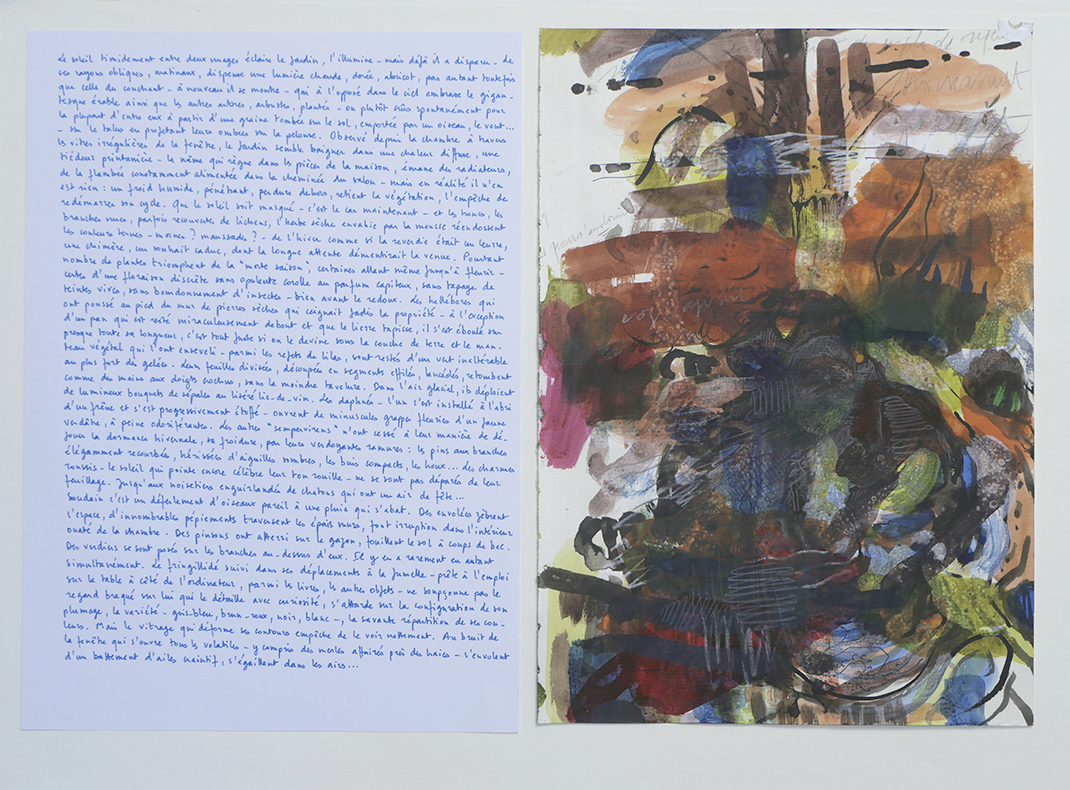 Le soleil timidement entre deux nuages éclaire le jardin, l'illumine - mais déjà il a disparu - de
ses rayons obliques, matinaux, dispense une lumière chaude, dorée, abricot, pas autant toutefois
que celle du couchant - à nouveau il se montre - qui à l'opposé dans le ciel embrase le gigan-
tesque érable ainsi que les autres arbres, arbustes, plantés - ou plutôt crûs spontanément pour
la plupart d'entre eux à partir d'une graine tombée sur le sol, emportée par un oiseau, le vent...
- sur le talus en projetant leurs ombres sur la pelouse. Observé depuis la chambre à travers
les vitres irrégulières de la fenêtre, le jardin semble baigner dans une chaleur diffuse, une
tiédeur printanière - la même qui règne dans les pièces de la maison, émane des radiateurs,
de la flambée constamment alimentée dans la cheminée du salon - mais en réalité il n'en
est rien : un froid humide, pénétrant, perdure dehors, retient la végétation, l'empêche de
redémarrer son cycle. Que le soleil soit masqué - c'est le cas maintenant - et les troncs, les
branches nues, parfois recouverts de lichens, l'herbe sèche envahie par la mousse réendossent
les couleurs ternes - mornes ? maussades ? - de l'hiver comme si la reverdie était un leurre,
une chimère, un souhait caduc, dont la longue attente démentirait la venue. Pourtant
nombre de plantes triomphent de la "morte saison", certaines allant même jusqu'à fleurir -
certes d'une floraison discrète sans opulente corolle au parfum capiteux, sans tapage de
teintes vives, sans bourdonnement d'insectes - bien avant le redoux. Les hellébores qui
ont poussé au pied du mur de pierres sèches qui ceignait jadis la propriété - à l'exception
d'un pan qui est resté miraculeusement debout et que le lierre tapisse, il s'est éboulé sur
presque toute sa longueur, c'est tout juste si on le devine sous la couche de terre et le man-
teau végétal qui l'ont enseveli - parmi les rejets de lilas, sont restés d'un vert inaltérable
au plus fort des gelées. Leurs feuilles divisées, découpées en segments effilés, lancéolés, retombent
comme des mains aux doigts crochus, sans la moindre tavelure. Dans l'air glacial, ils déploient
de lumineux bouquets de sépales au liséré lie-de-vin. Les daphnés - l'un s'est installé à l'abri
d'un frêne et s'est progressivement étoffé - ouvrent de minuscules grappes fleuries d'un jaune
verdâtre, à peine odoriférantes. Les autres "sempervirens" n'ont cessé à leur manière de dé-
jouer la dormance hivernale, sa froidure, par leurs verdoyantes ramures : les pins aux branches
élégamment recourbées, hérissées d'aiguilles sombres, les buis compacts, le houx... des charmes
roussis - le soleil qui pointe encore célèbre leur ton rouille - ne se sont pas déparés de leur
feuillage. Jusqu'aux noisetiers enguirlandés de chatons qui ont un air de fête...
Soudain c'est un déferlement d'oiseaux pareil à une pluie qui s'abat. Des envolées zèbrent
l'espace, d'innombrables pépiements traversent les épais murs, font irruption dans l'intérieur
ouaté de la chambre. Des pinsons ont atterri sur le gazon, fouillent le sol à coups de bec.
Des verdiers se sont posés sur les branches au-dessus d'eux. Il y en a rarement eu autant
simultanément. Le fringillidé suivi dans ses déplacements à la jumelle - prête à l'emploi
sur la table à côté de l'ordinateur, parmi les livres, les autres objets - ne soupçonne pas le
regard braqué sur lui qui le détaille avec curiosité, s'attarde sur la configuration de son
plumage, la variété - gris-bleu, brun-roux, noir, blanc -, la savante répartition de ses cou-
leurs. Mais le vitrage qui déforme ses contours empêche de le voir nettement. Au bruit de
la fenêtre qui s'ouvre tous les volatiles - y compris des merles affairés près des haies - s'envolent
d'un battement d'ailes craintif, s'égaillent dans les airs...